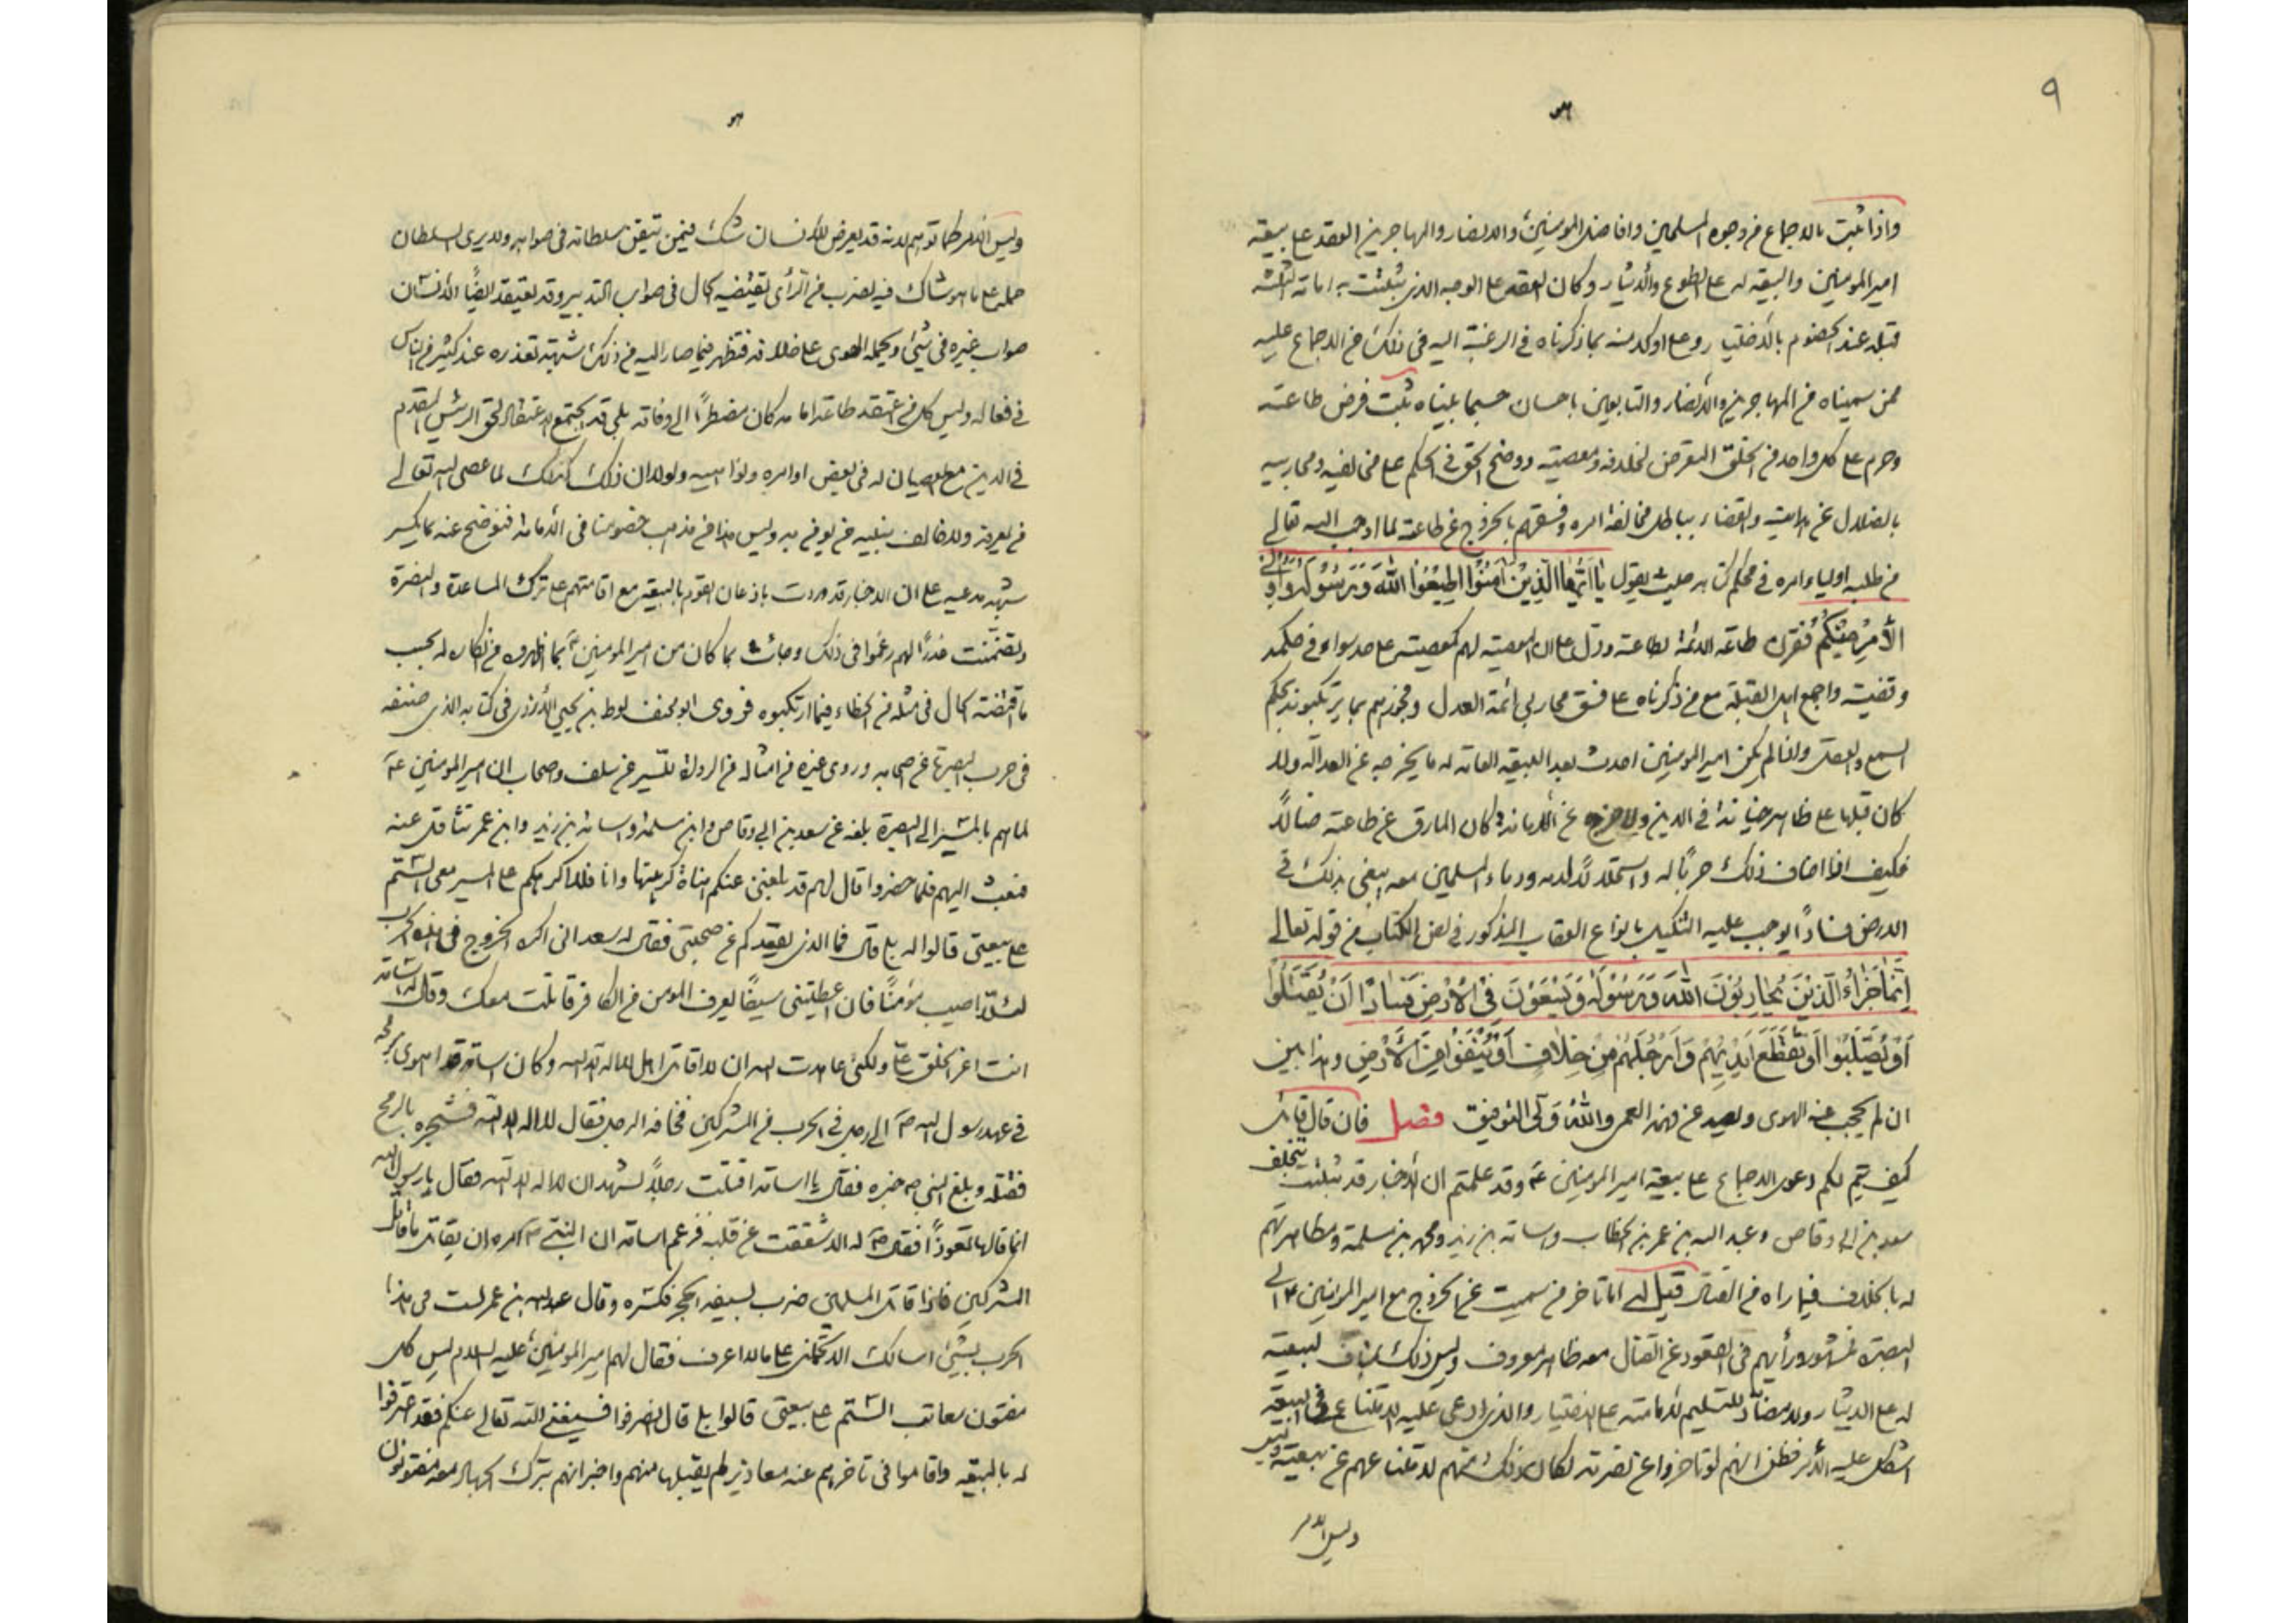 ٩
هو
واذا ثبت بالاجماع من وجوه المسلمين وافاضل المؤمنين والانصار والمهاجرين العقد على بيعة
امير المؤمنين والبيعة له على الطوع والايثار وكان العقد على الوجه الذى ثبتت به امامة الثلثة
قبله عند الخصوم بالاختيار وعلى اوكد منه بما ذكرناه فى الرغبة اليه فى ذلك من الاجماع عليه
ممن سميناه من المهاجرين والانصار والتابعين باحسان حسبما بيناه ثبت فرض طاعته
وحرم على كل واحد من الخلق التعرض لخلافه ومعصيته ووضح الحق فى الحكم على مخالفيه ومحاربيه
بالضلال عن هدايته والقضاء بباطل مخالفة امره وفسقهم بالخروج عن طاعته لما اوجب الله تعالى
من طلبه اولياء امره فى محكم كتابه حيث يقول يا ايها الذين آمنوا اطيعوا الله ورسوله واولى
الامر منكم فقرن طاعة الائمة بطاعته ودل على ان المعصية لهم كمعصيته على حد سواء فى حكمه
وقضيته واجمع اهل القبلة مع من ذكرناه على فسق محاربى ائمة العدل وفجورهم بما يرتكبونه بحكم
السمع والعقل واذا لم يكن امير المؤمنين احدث بعد البيعة العامة له ما يخرجه عن العدالة ولا
كان قبلها على ظاهر خيانة فى الدين ولا خرج عن الامامة كان المارق عن طاعته ضالاً
فكيف اذا اضاف ذلك حرباً له واستحلالاً لدمه ودماء المسلمين معه يبغى بذلك فى
الارض فساداً يوجب عليه التنكيل بانواع العقاب المذكور فى نص الكتاب من قوله تعالى
انما جزاء الذين يحاربون الله ورسوله ويسعون فى الارض فساداً ان يقتلوا
او يصلبوا او تقطع ايديهم وارجلهم من خلاف او ينفوا من الارض وهذا بين
ان لم يحجب عنه الهوى وبعيد عن فهمه العمى والله ولى التوفيق فصل فان قال قائل
كيف تم لكم دعوى الاجماع على بيعة امير المؤمنين ع وقد علمتم ان الاخبار قد ثبتت بتخلف
سعد بن ابى وقاص وعبد الله بن عمر بن الخطاب واسامة بن زيد ومحمد بن مسلمة ومظاهرتهم
له بالخلاف فيما راه من القتال قيل له اما تاخر من سميت عن الخروج مع امير المؤمنين ع الى
البصرة فمشهور ورأيهم فى القعود عن القتال معه ظاهر معروف وليس ذلك بمناف لبيعته
له على الايثار ولا مضاد للتسليم لامامته على الاختيار والذى ادعى عليه الامتناع فى البيعة
اشكل عليه الامر فظن انهم لو تاخروا عن نصرته لكان ذلك منهم لامتناعهم عن بيعته وليس
وليس الامر
هو
وليس الامر كما توهم لانه قد يعرض للانسان شك فيمن تيقن سلطانه فى صوابه ولا يرى السلطان
حمله على ما هو شاك فيه لضرب من الرأى يقتضيه الحال فى صواب التدبير وقد يعتقد ايضاً الانسان
صواب غيره فى شئ ويحمله الهوى على خلافه فتظهر فيما صار اليه من ذلك شبهة تعذره عند كثير من الناس
فى فعاله وليس كل من اعتقد طاعة امامه كان مضطراً الى وفاقه بلى قد يجتمع الاعتقاد لحق الرئيس المقدم
فى الدين مع العصيان له فى بعض اوامره ونواهيه ولولا ان ذلك كذلك لما عصى الله تعالى
من يعرفه ولا خالف نبيه من يؤمن به وليس هذا من مذهب خصومنا فى الامامة فنوضح عنه بما يكسر
شبهة مدعيه على ان الاخبار قد وردت باذعان القوم بالبيعة مع اقامتهم على ترك المساعدة والنصرة
وتضمنت عذراً لهم زعموا فى ذلك وجاءت بما كان من امير المؤمنين ع بما اظهروه من انكاره له بحسب
ما اقتضته الحال فى مثله من الخطاء فيما ارتكبوه فروى ابو مخنف لوط بن يحيى الازدى فى كتابه الذى صنفه
فى حرب البصرة عن اصحابه وروى غيره من امثاله من الرواة للسير عن سلف واصحابه ان امير المؤمنين ع
لما هم بالمسير الى البصرة بلغه عن سعد بن ابى وقاص وابن مسلمة واسامة بن زيد وابن عمر تثاقل عنه
فبعث اليهم فلما حضروا قال لهم قد بلغنى عنكم هناة كرهتها وانا فلا اكرهكم على المسير معى الستم
على بيعتى قالوا له بلى قال فما الذى يقعدكم عن صحبتى فقال له سعد انى اكره الخروج فى هذه الحرب
لئلا اصيب مؤمناً فان اعطيتنى سيفاً يعرف المؤمن من الكافر قاتلت معك وقال له اسامة
انت اعز الخلق على ولكنى عاهدت الله ان لا اقاتل اهل لا اله الا الله وكان اسامة قد اهوى برمحه
فى عهد رسول الله ص الى رجل فى الحرب من المشركين فخافه الرجل فقال لا اله الا الله فشجره بالرمح
فقتله وبلغ النبى ص خبره فقال يا اسامة اقتلت رجلاً يشهد ان لا اله الا الله فقال يا رسول الله
انما قالها تعوذاً فقال ص له الا شققت عن قلبه فزعم اسامة ان النبى ص امره ان يقاتل ما قاتل
المشركين فاذا قاتل المسلمين ضرب بسيفه الحجر فكسره وقال عبد الله بن عمر لست فى هذا
الحرب بشئ اسالك الا تحملنى على ما لا اعرف فقال لهم امير المؤمنين عليه السلام ليس كل
مفتون يعاتب الستم على بيعتى قالوا بلى قال انصرفوا فسيغنى الله تعالى عنكم فقد اعترفوا
له بالبيعة واقاموا فى تاخرهم عنه معاذير لم يقبلها منهم واخبر انهم بترك الجهاد معه مفتونون